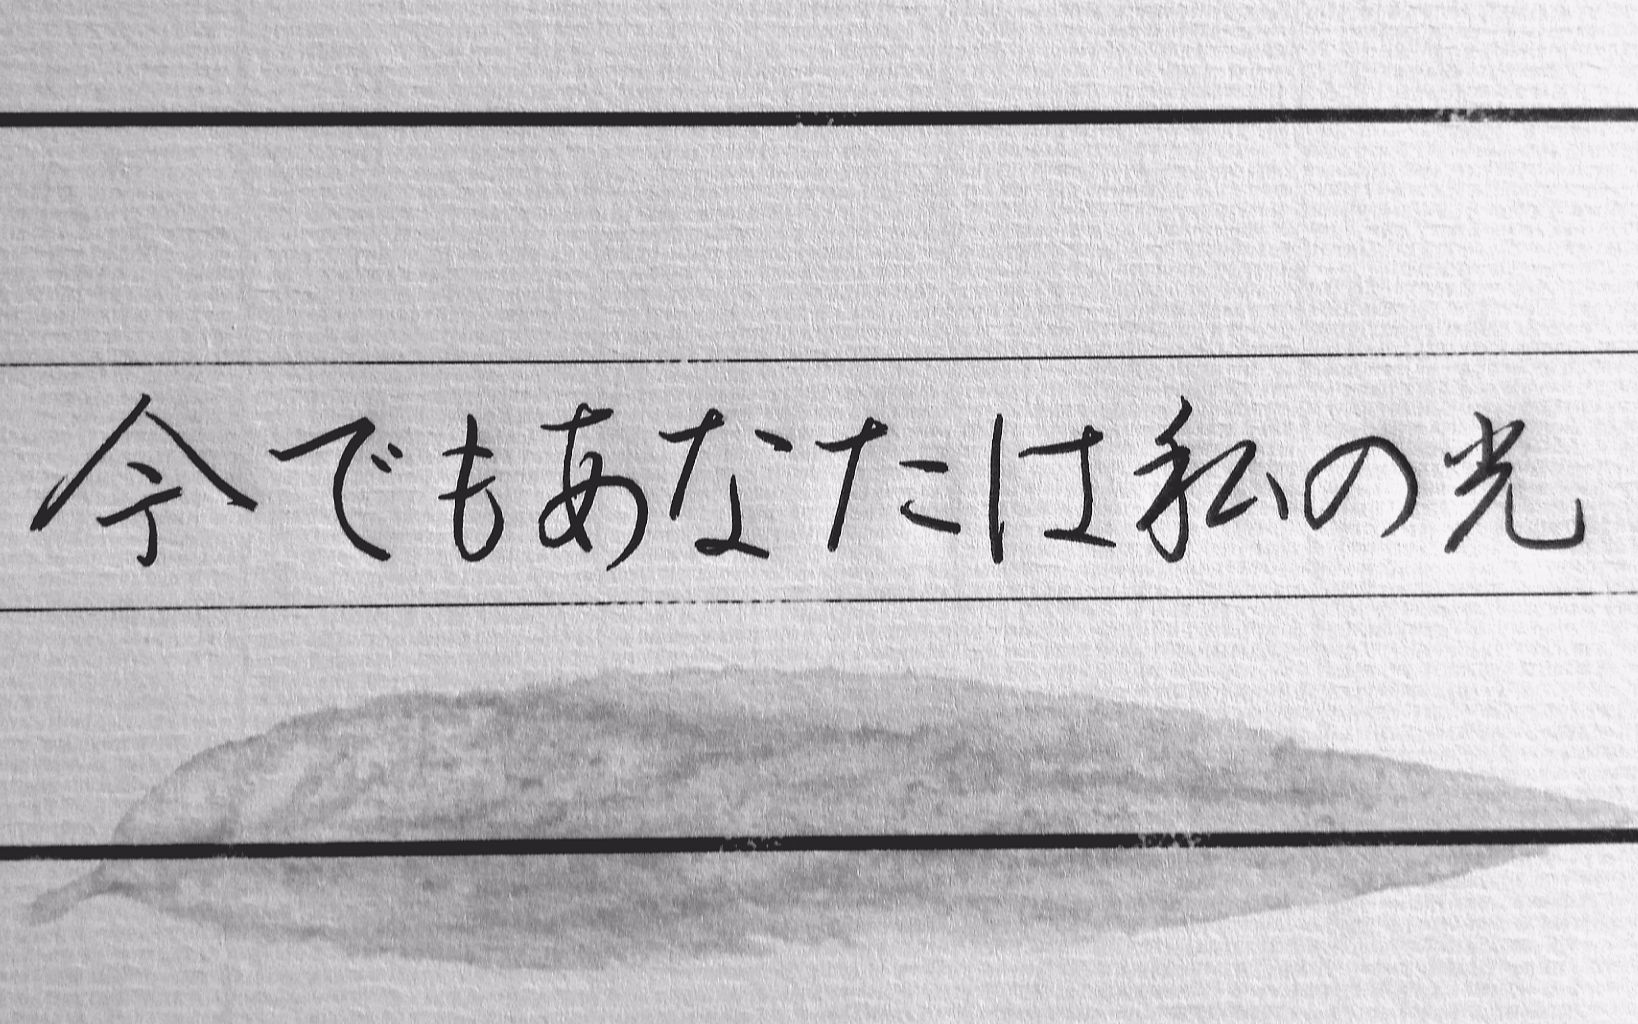 今でもあなたは私の光